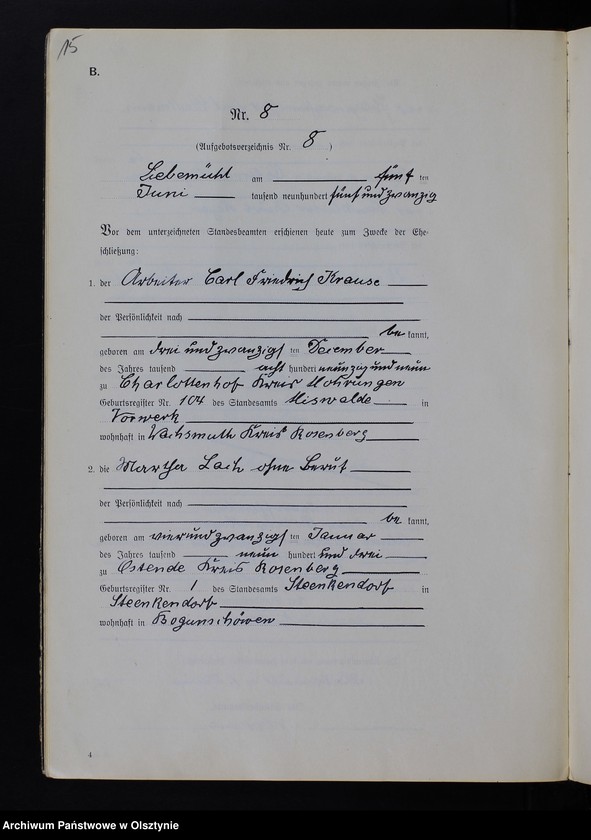 15
B.
Nr. 8
(Aufgebotsverzeichnis Nr. 8)
Liebemühl am fünf ten
Juni tausend neunhundert fünf und zwanzig
Vor dem unterzeichneten Standesbeamten erschienen heute zum Zwecke der Ehe-
schließung:
1. der Arbeiter Carl Friedrich Krause
der Persönlichkeit nach
be kannt,
geboren am drei und zwanzigs ten Dezember
des Jahres tausend acht hundert neunzig und neun
zu Charlottenhof Kreis Mohrungen
Geburtsregister Nr. 104 des Standesamts Miswalde in
Vorwerk
wohnhaft in Wachsmuth Kreis Rosenberg
2. die Martha Lach ohne Beruf
der Persönlichkeit nach
be kannt,
geboren am vier und zwanzigs ten Januar
des Jahres tausend neun hundert und drei
zu Ostende Kreis Rosenberg
Geburtsregister Nr. 1 des Standesamts Steenkendorf in
Steenkendorf
wohnhaft in Bogunschöwen
4
Archiwum Państwowe w Olsztynie